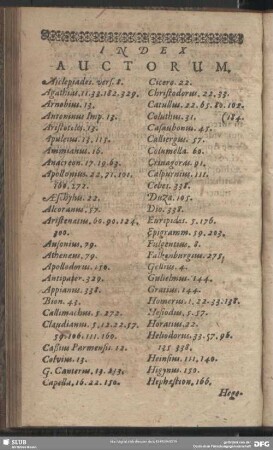 INDEX
AUCTORUM.
Asclepiades. vers. 8.
Agathias. 11. 33. 182. 329.
Arnobius. 13.
Antoninus Imp. 13.
Aristoteles. 13.
Apuleius. 13. 115.
Ammianus. 16.
Anacreon. 17. 19. 63.
Apollonius. 22. 71. 101.
160. 272.
Æschylus. 22.
Alcoranus. 57.
Aristenatus. 60. 90. 124.
300.
Ausonius, 79.
Athenæus, 79.
Apollodorus. 150.
Antipater. 329.
Appianus. 338.
Bion. 45.
Callimachus. 5. 272.
Claudianus. 5. 12. 22. 57.
59. 106. 111. 160.
Cassius Parmensis. 12.
Calvius. 13.
G. Canterus, 13. 253.
Capella, 16. 22. 150.
Cicero. 22.
Christodorus. 22. 33.
Catullus. 22. 65. 80. 102.
Coluthus. 31. (184.
Casaubonus. 45.
Calliergius. 57.
Columella. 60.
Crinagoras. 91.
Calpurnius. 111.
Cebes. 338.
Duza. 105.
Dio. 338.
Euripides. 5. 176.
Epigramm. 59. 203.
Fulgentius, 8.
Falkenburgius. 275.
Gellius. 4.
Gulielmus. 144.
Gratius. 144.
Homerus. 1. 22. 33. 138.
Hesiodus, 5. 57.
Horatius. 22.
Heliodorus. 33. 57. 96.
135. 338.
Heinsius. 111, 140.
Higynus. 150.
Hephæstion, 166.
Hege-
SLUB